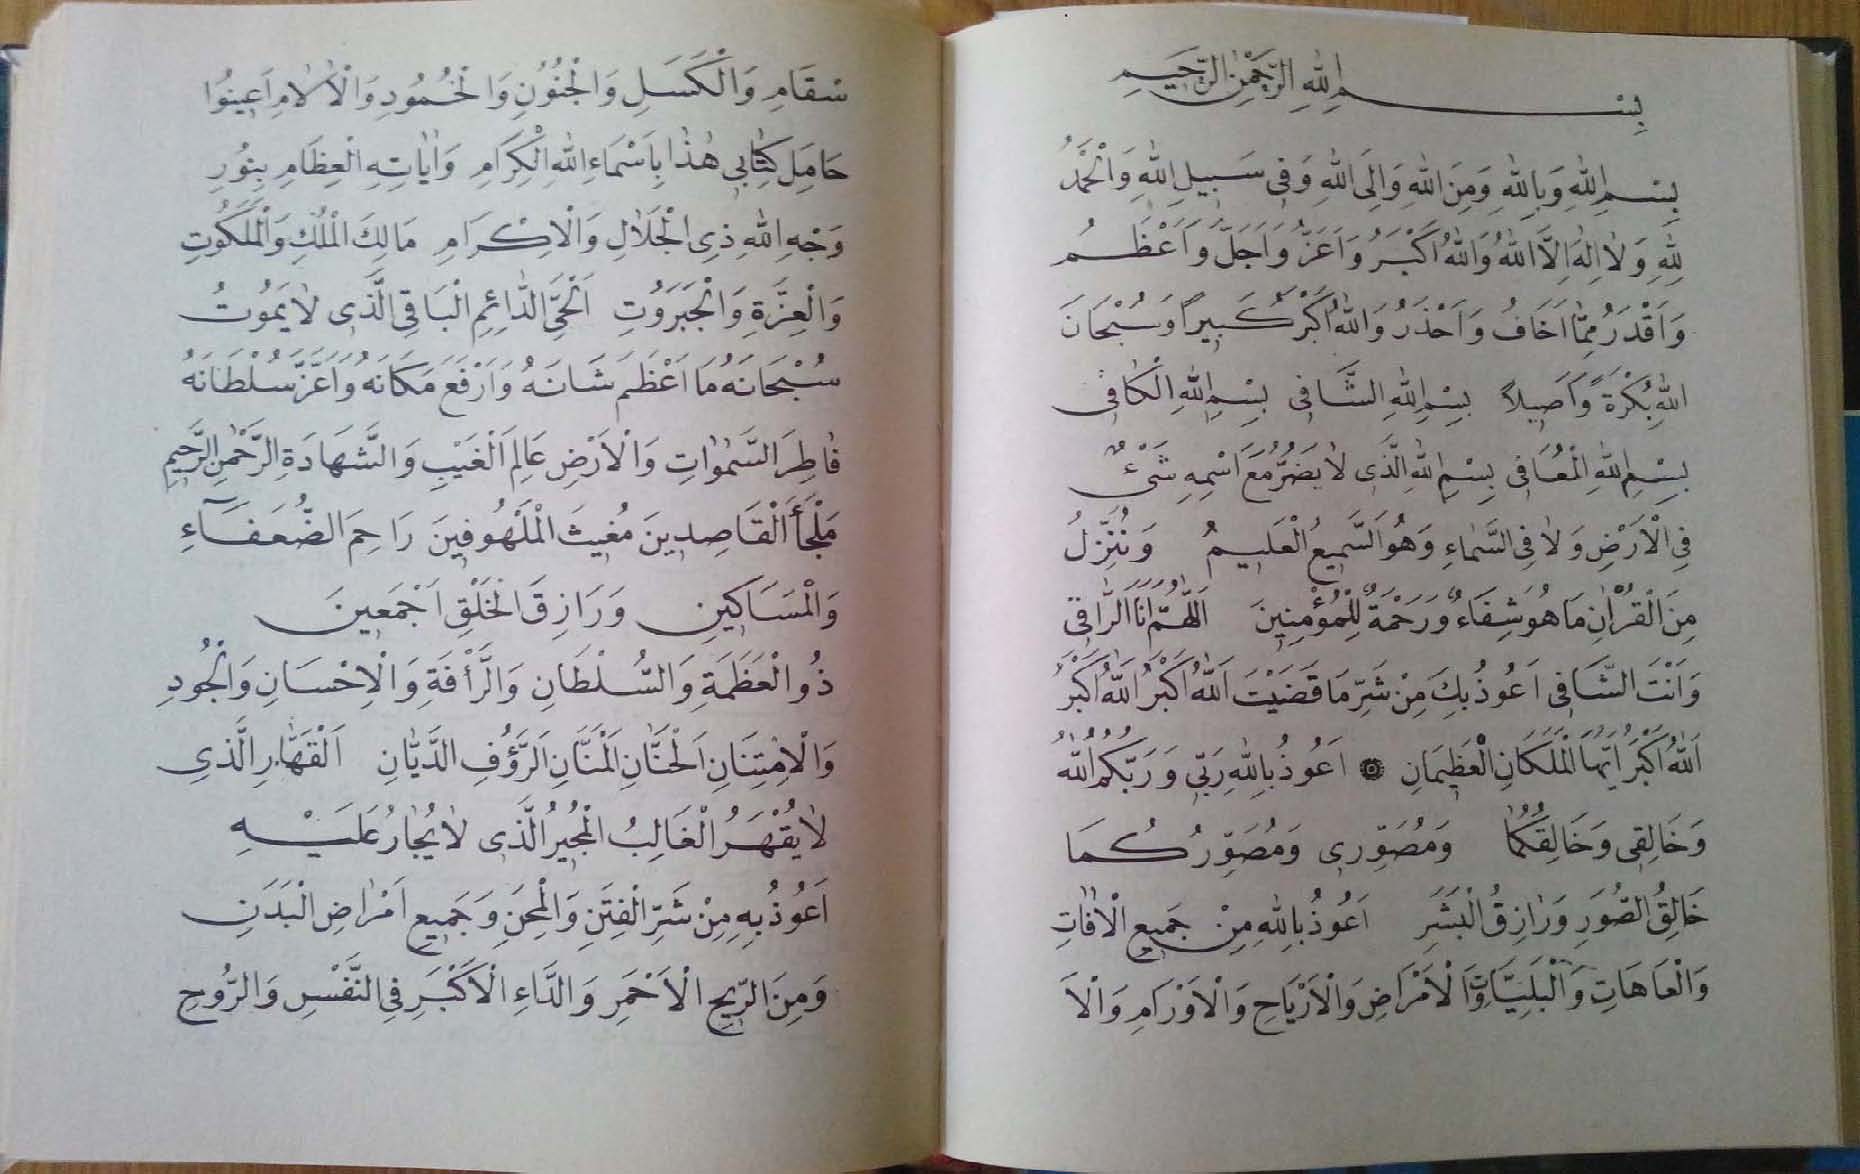 بِسْمِ اللهِ الرَّحْمٰنِ الرَّحِيمِ
بِسْمِ اللهِ وَبِاللهِ وَمِنَ اللهِ وَاِلَى اللهِ وَفِى سَبِيلِ اللهِ وَالْحَمْدُ
لِلّٰهِ وَلَا اِلٰهَ اِلَّا اللهُ وَاللهُ اَكْبَرُ وَاَعَزُّ وَاَجَلُّ وَاَعْظَمُ
وَاَقْدَرُ مِمَّا اَخَافُ وَاَحْذَرُ وَاللهُ اَكْبَرُ كَبِيرًا وَسُبْحَانَ
اللهِ بُكْرَةً وَاَصِيلاً بِسْمِ اللهِ الشَّافِى بِسْمِ اللهِ الْكَافِى
بِسْمِ اللهِ الْمُعَافِى بِسْمِ اللهِ الَّذِى لَا يَضُرُّ مَعَ اسْمِهِ شَىْءٌ
فِى الْاَرْضِ وَلَا فِى السَّمَاءِ وَهُوَ السَّمِيعُ الْعَلِيمُ وَنُنَزِّلُ
مِنَ الْقُرْاٰنِ مَا هُوَ شِفَاءٌ وَرَحْمَةٌ لِلْمُؤْمِنِينَ اَللّٰهُمَّ اَنَا الرَّاقِى
وَاَنْتَ الشَّافِى اَعُوذُ بِكَ مِنْ شَرِّ مَا قَضَيْتَ اَللهُ اَكْبَرُ اَللهُ اَكْبَرُ
اَللهُ اَكْبَرُ اَيُّهَا الْمَلَكَانِ الْعَظِيمَانِ ۞ اَعُوذُ بِاللهِ رَبِّى وَرَبُّكُمُ اللهُ
وَخَالِقِى وَخَالِقُكُمَا وَمُصَوِّرِى وَمُصَوِّرُكُمَا
خَالِقُ الصُّوَرِ وَرَازِقُ الْبَشَرِ اَعُوذُ بِاللهِ مِنْ جَمِيعِ الْاٰفَاتِ
وَالْعَاهَاتِ وَالْبَلِيَّاتِ وَالْاَمْرَاضِ وَالْاَرْيَاحِ وَالْاَوْرَامِ وَالْاَ
سْقَامِ وَالْكَسَلِ وَالْجُنُونِ وَالْخُمُودِ وَالْاٰلَامِ اَعِينُوا
حَامِلَ كِتَابِى هٰذَا بِاَسْمَاءِ اللهِ الْكِرَامِ وَاٰيَاتِهِ الْعِظَامِ بِنُورِ
وَجْهِ اللهِ ذِى الْجَلَالِ وَالْاِكْرَامِ مَالِكَ الْمُلْكِ وَالْمَلَكُوتِ
وَالْعِزَّةِ وَالْجَبَرُوتِ اَلْحَىِّ الدَّائِمِ الْبَاقِى الَّذِى لَا يَمُوتُ
سُبْحَانَهُ مَا اَعْظَمَ شَانَهُ وَاَرْفَعَ مَكَانَهُ وَاَعَزَّ سُلْطَانَهُ
فَاطِرَ السَّمٰوَاتِ وَالْاَرْضِ عَالِمَ الْغَيْبِ وَالشَّهَادَةِ الرَّحْمٰنِ الرَّحِيمِ
مَلْجَأَ الْقَاصِدِينَ مُغِيثَ الْمَلْهُوفِينَ رَاحِمَ الضُّعَفَآءِ
وَالْمَسَاكِينِ وَرَازِقَ الْخَلْقِ اَجْمَعِينَ
ذُو الْعَظَمَةِ وَالسُّلْطَانِ وَالرَّأْفَةِ وَالْاِحْسَانِ وَالْجُودِ
وَالْاِمْتِنَانِ اَلْحَنَّانِ الْمَنَّانِ الرَّؤُفِ الدَّيَّانِ اَلْقَهَّارِ الَّذِى
لَا يُقْهَرُ الْغَالِبُ الْمُجِيرُ الَّذِى لَا يُجَارُ عَلَيْهِ
اَعُوذُ بِهِ مِنْ شَرِّ الْفِتَنِ وَالْمِحَنِ وَجَمِيعِ اَمْرَاضِ الْبَدَنِ
وَمِنَ الرِّيحِ الْاَحْمَرِ وَالدَّاءِ الْاَكْبَرِ فِى النَّفْسِ وَالرُّوحِ